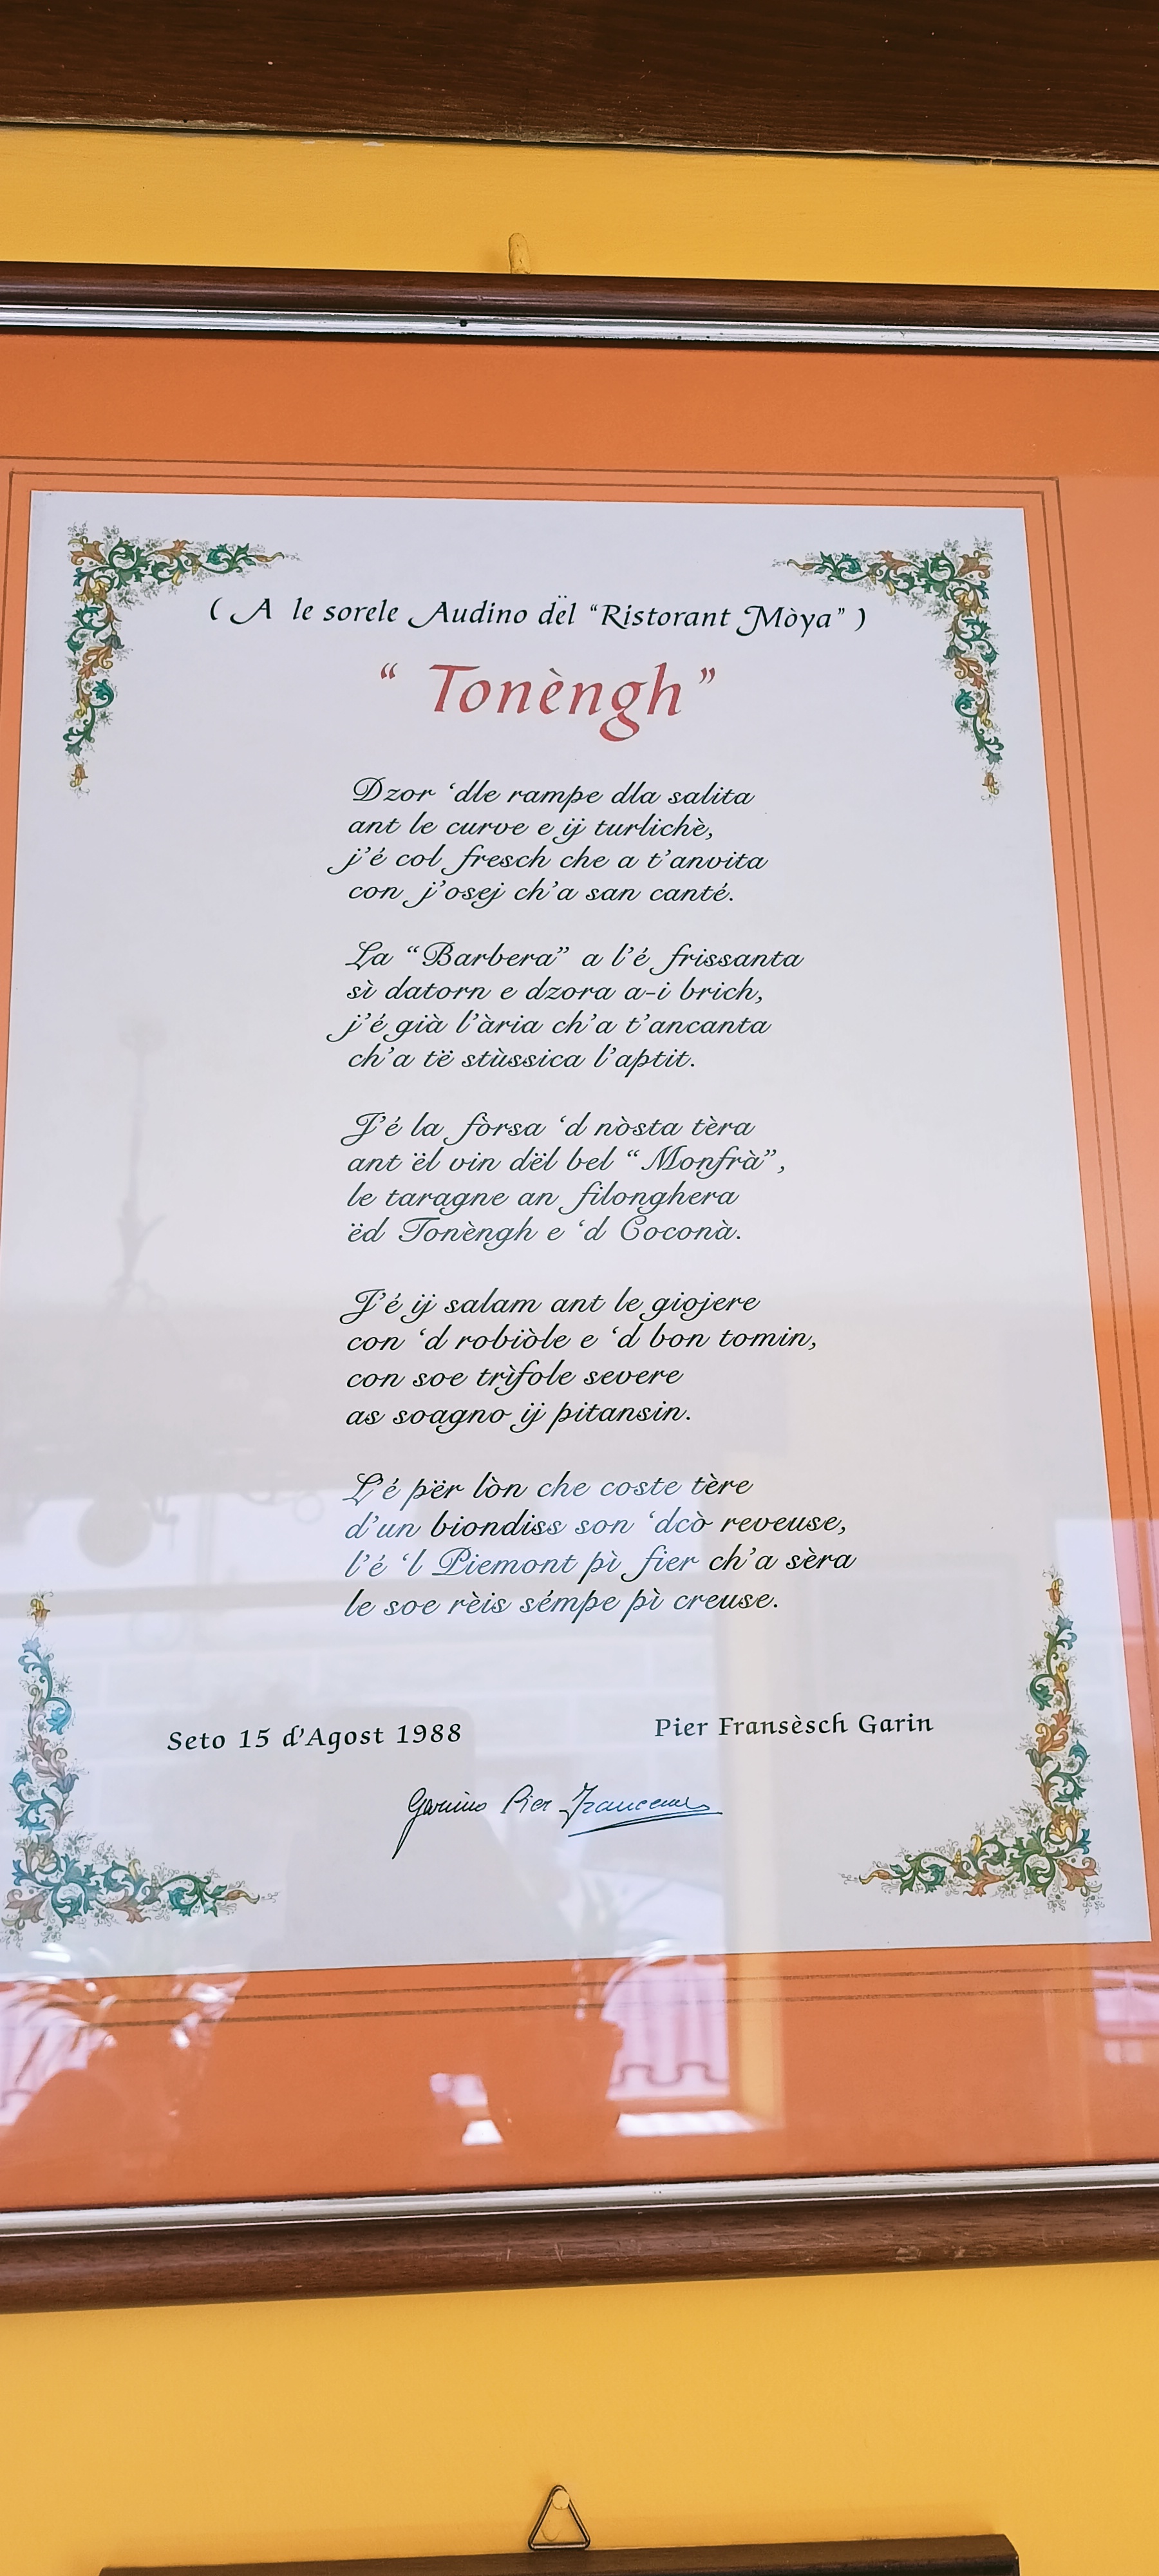 ( A le sorele Audino dël “Ristorant Mòya” )
“ Tonèngh ”
Dzor ‘dle rampe dla salita
ant le curve e ij turlichè,
j’é col fresch che a t’anvita
con j’osej ch’a san canté.
La “Barbera” a l’é frissanta
sì datorn e dzora a-i brich,
j’é già l’ària ch’a t’ancanta
ch’a të stùssica l’aptit.
J’é la fòrsa ‘d nòsta tèra
ant ël vin dël bel “Monfrà”,
le taragne an filonghera
ëd Tonèngh e ‘d Coconà.
J’é ij salam ant le giojere
con ‘d robiòle e ‘d bon tomin,
con soe trìfole severe
as soagno ij pitansin.
L’é për lòn che coste tère
d’un biondiss son ‘dcò reveuse,
l’é ‘l Piemont pì fier ch’a sèra
le soe rèis sémpe pì creuse.
Seto 15 d’Agost 1988
Pier Fransèsch Garin
Garino Pier Francesco